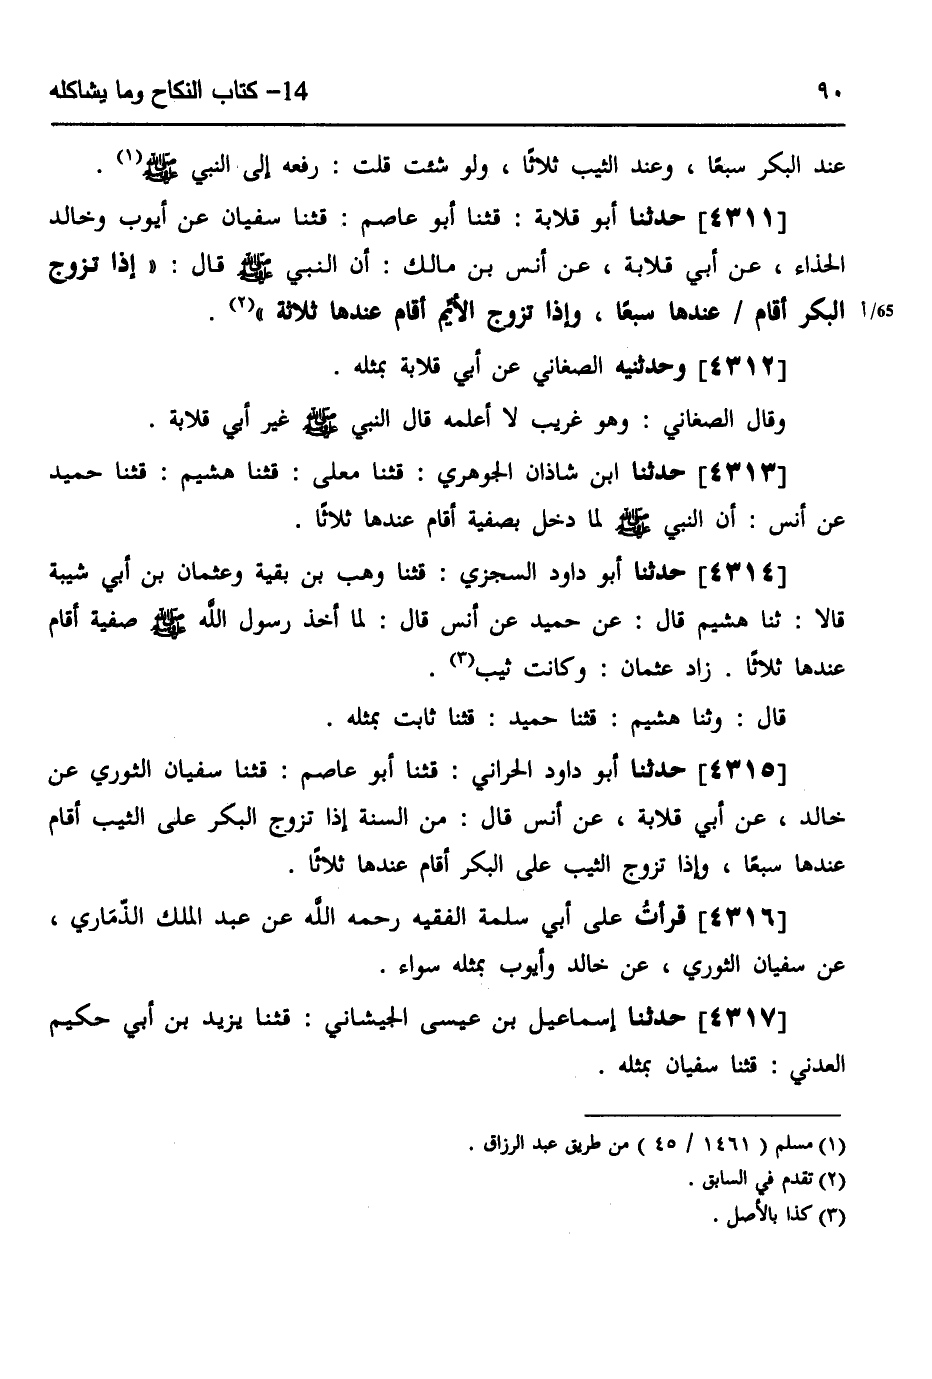 ٩٠ 14- كتاب النكاح وما يشاكله
عند البكر سبعًا ، وعند الثيب ثلاثًا ، ولو شئت قلت : رفعه إلى النبي ﷺ(١) .
[٤٣١١] حدثنا أبو قلابة : قثنا أبو عاصم : قثنا سفيان عن أيوب وخالد
الحذاء ، عن أبي قلابة ، عن أنس بن مالك : أن النبي ﷺ قال : « إذا تزوج
البكر أقام / عندها سبعًا ، وإذا تزوج الأيِّم أقام عندها ثلاثة »(٢) .
65/أ
[٤٣١٢] وحدثنيه الصغاني عن أبي قلابة بمثله .
وقال الصغاني : وهو غريب لا أعلمه قال النبي ﷺ غير أبي قلابة .
[٤٣١٣] حدثنا ابن شاذان الجوهري : قثنا معلى : قثنا هشيم : قثنا حميد
عن أنس : أن النبي ﷺ لما دخل بصفية أقام عندها ثلاثًا .
[٤٣١٤] حدثنا أبو داود السجزي : قثنا وهب بن بقية وعثمان بن أبي شيبة
قالا : ثنا هشيم قال : عن حميد عن أنس قال : لما أخذ رسول اللَّه ﷺ صفية أقام
عندها ثلاثًا . زاد عثمان : وكانت ثيب(٣) .
قال : وثنا هشيم : قثنا حميد : قثنا ثابت بمثله .
[٤٣١٥] حدثنا أبو داود الحراني : قثنا أبو عاصم : قثنا سفيان الثوري عن
خالد ، عن أبي قلابة ، عن أنس قال : من السنة إذا تزوج البكر على الثيب أقام
عندها سبعًا ، وإذا تزوج الثيب على البكر أقام عندها ثلاثًا .
[٤٣١٦] قرأتُ على أبي سلمة الفقيه رحمه اللَّه عن عبد الملك الذّمَاري ،
عن سفيان الثوري ، عن خالد وأيوب بمثله سواء .
[٤٣١٧] حدثنا إسماعيل بن عيسى الجيشاني : قثنا يزيد بن أبي حكيم
العدني : قثنا سفيان بمثله .
(١) مسلم ( ١٤٦١ / ٤٥ ) من طريق عبد الرزاق .
(٢) تقدم في السابق .
(٣) كذا بالأصل .